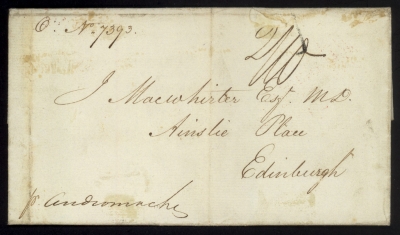 No. 7393.
J Macwhirter Esqr. M.D.
Ainslie Place
Edinburgh
pr Andromache